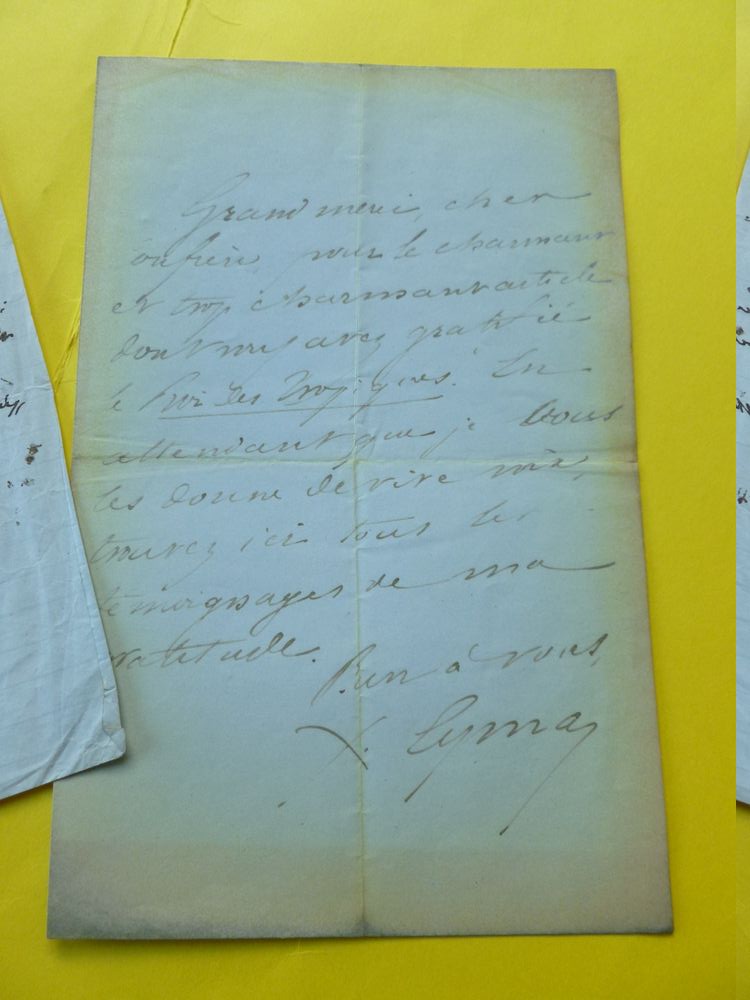 Grand merci, cher
confrère, pour le charmant
et trop charmant article
dont vous avez gratifié
le Roi des Tropiques. En
attendant que je vous
les donne de vive voix,
trouvez ici tous les
témoignages de ma
gratitude.
Bien à vous,